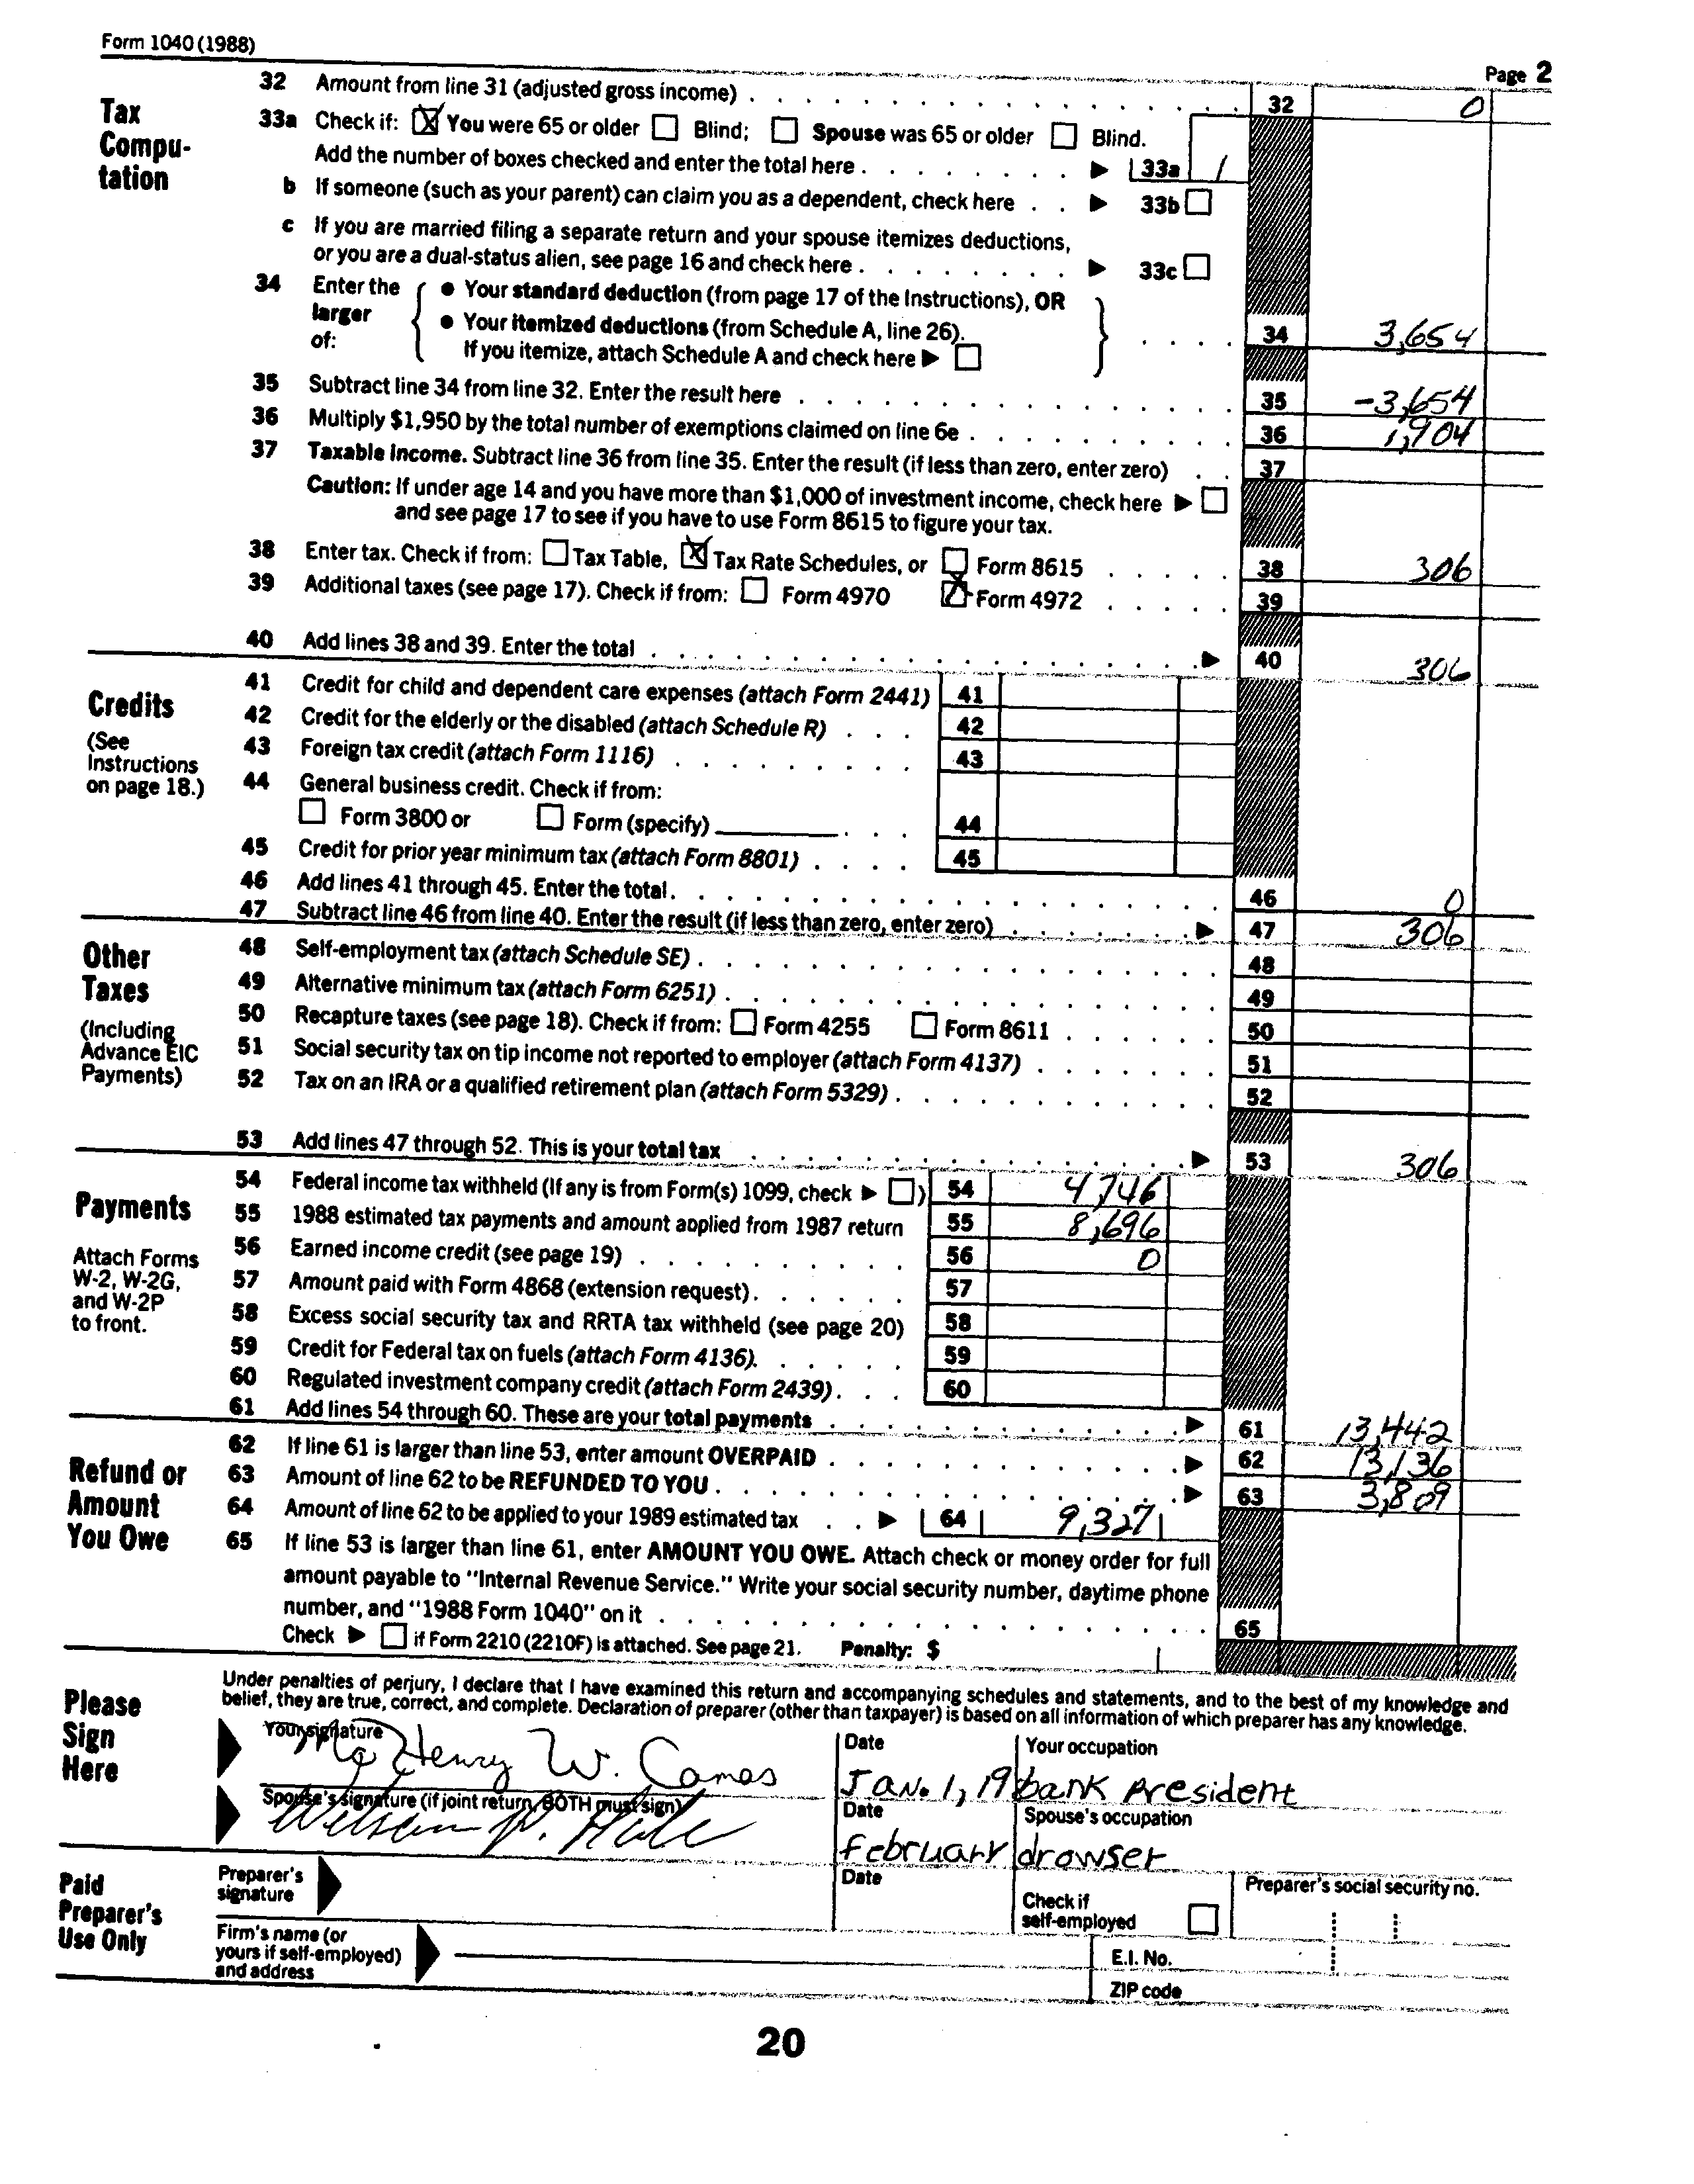 Form 1040 (1988)
Page 2
Tax Compu-tation
32 Amount from line 31 (adjusted gross income) . . . 32 0
33a Check if: ☒ You were 65 or older ☐ Blind; ☐ Spouse was 65 or older ☐ Blind.
Add the number of boxes checked and enter the total here . . . ▶ 33a 1
b If someone (such as your parent) can claim you as a dependent, check here . . ▶ 33b ☐
c If you are married filing a separate return and your spouse itemizes deductions,
or you are a dual-status alien, see page 16 and check here . . . ▶ 33c ☐
34 Enter the larger of: { ● Your standard deduction (from page 17 of the Instructions), OR
● Your itemized deductions (from Schedule A, line 26).
If you itemize, attach Schedule A and check here ▶ ☐ } . . . . 34 3,654
35 Subtract line 34 from line 32. Enter the result here . . . 35 -3,654
36 Multiply $1,950 by the total number of exemptions claimed on line 6e . . . 36 1,904
37 Taxable income. Subtract line 36 from line 35. Enter the result (if less than zero, enter zero) . . 37
Caution: If under age 14 and you have more than $1,000 of investment income, check here ▶ ☐
and see page 17 to see if you have to use Form 8615 to figure your tax.
38 Enter tax. Check if from: ☐ Tax Table, ☒ Tax Rate Schedules, or ☐ Form 8615 . . . 38 306
39 Additional taxes (see page 17). Check if from: ☐ Form 4970 ☒ Form 4972 . . . 39
40 Add lines 38 and 39. Enter the total . . . ▶ 40 306
Credits
(See Instructions on page 18.)
41 Credit for child and dependent care expenses (attach Form 2441) 41
42 Credit for the elderly or the disabled (attach Schedule R) . . . 42
43 Foreign tax credit (attach Form 1116) . . . 43
44 General business credit. Check if from:
☐ Form 3800 or ☐ Form (specify) . . . 44
45 Credit for prior year minimum tax (attach Form 8801) . . . . 45
46 Add lines 41 through 45. Enter the total . . . 46 0
47 Subtract line 46 from line 40. Enter the result (if less than zero, enter zero) . . . ▶ 47 306
Other Taxes
(Including Advance EIC Payments)
48 Self-employment tax (attach Schedule SE) . . . 48
49 Alternative minimum tax (attach Form 6251) . . . 49
50 Recapture taxes (see page 18). Check if from: ☐ Form 4255 ☐ Form 8611 . . . 50
51 Social security tax on tip income not reported to employer (attach Form 4137) . . . 51
52 Tax on an IRA or a qualified retirement plan (attach Form 5329) . . . 52
53 Add lines 47 through 52. This is your total tax . . . ▶ 53 306
Payments
Attach Forms W-2, W-2G, and W-2P to front.
54 Federal income tax withheld (If any is from Form(s) 1099, check ▶ ☐) 54 4,746
55 1988 estimated tax payments and amount applied from 1987 return 55 8,696
56 Earned income credit (see page 19) . . . 56 0
57 Amount paid with Form 4868 (extension request) . . . 57
58 Excess social security tax and RRTA tax withheld (see page 20) 58
59 Credit for Federal tax on fuels (attach Form 4136) . . . 59
60 Regulated investment company credit (attach Form 2439) . . . 60
61 Add lines 54 through 60. These are your total payments . . . ▶ 61 13,442
Refund or Amount You Owe
62 If line 61 is larger than line 53, enter amount OVERPAID . . . ▶ 62 13,136
63 Amount of line 62 to be REFUNDED TO YOU . . . ▶ 63 3,809
64 Amount of line 62 to be applied to your 1989 estimated tax . . ▶ 64 9,327
65 If line 53 is larger than line 61, enter AMOUNT YOU OWE. Attach check or money order for full
amount payable to "Internal Revenue Service." Write your social security number, daytime phone
number, and "1988 Form 1040" on it . . . 65
Check ▶ ☐ if Form 2210 (2210F) is attached. See page 21. Penalty: $
Please Sign Here
Under penalties of perjury, I declare that I have examined this return and accompanying schedules and statements, and to the best of my knowledge and
belief, they are true, correct, and complete. Declaration of preparer (other than taxpayer) is based on all information of which preparer has any knowledge.
Your signature Henry W. Date Jan. 1, 19 Your occupation bank president
Spouse's signature (if joint return, BOTH must sign) Date february Spouse's occupation drowser
Paid Preparer's Use Only
Preparer's signature Date Check if self-employed ☐ Preparer's social security no.
Firm's name (or yours if self-employed) and address E.I. No.
ZIP code
20